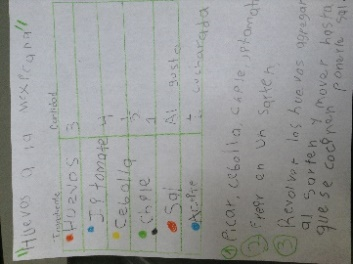 "Huevos a la mexicana"
Ingrediente Cantidad
Huevos 3
Jitomate 4
Cebolla
Chile 2
Sal Al gusto
Aceite 1 cucharada
① Picar, cebolla, chile, jitomate
② Freír en un sarten
③ Revolver los huevos agregar
al sarten y mover hasta
que se cocinen ponerle sal